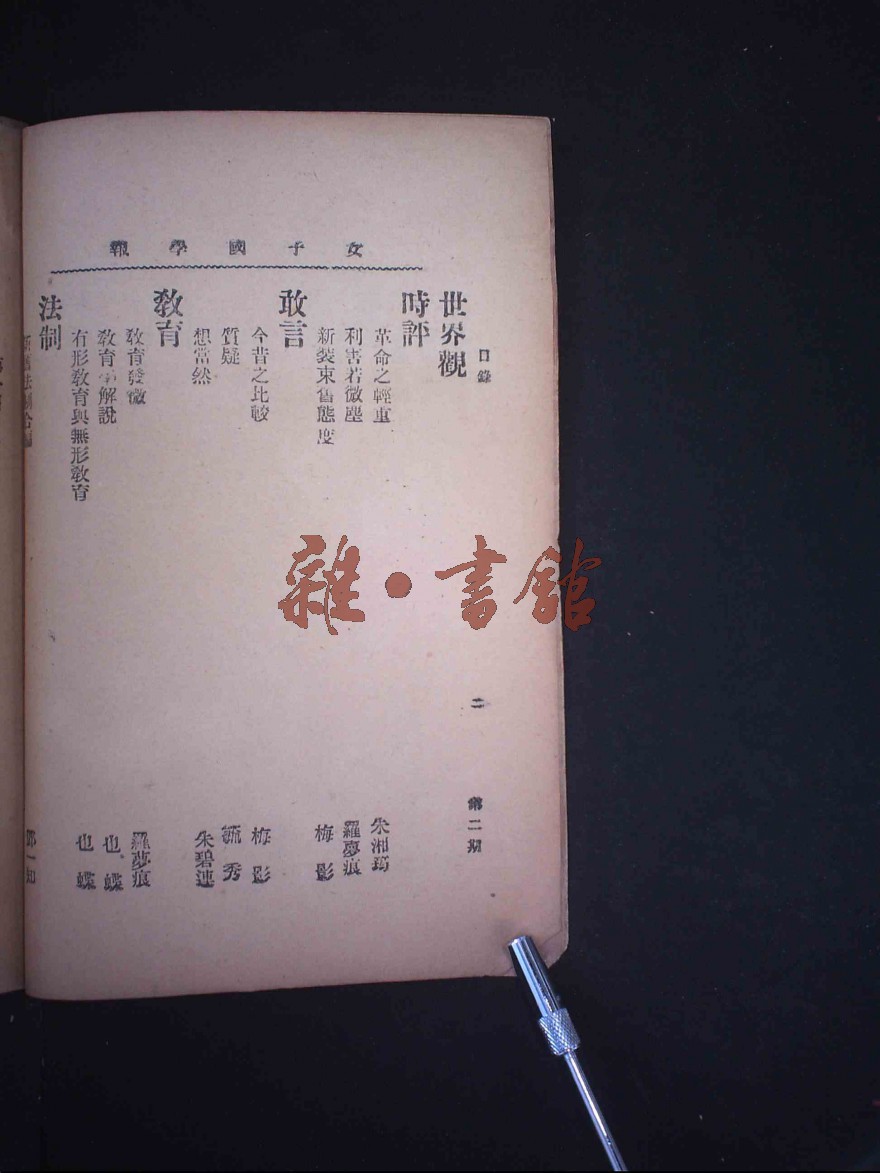 女子國學報
目錄
二
第二期
世界觀
時評
革命之輕重
朱湘筠
利害若微塵
羅夢痕
新裝束舊態度
梅影
敢言
今昔之比較
梅影
質疑
毓秀
想當然
朱碧連
教育
教育發微
羅夢痕
教育學解說
也蝶
有形教育與無形教育
也蝶
法制
雜·書館